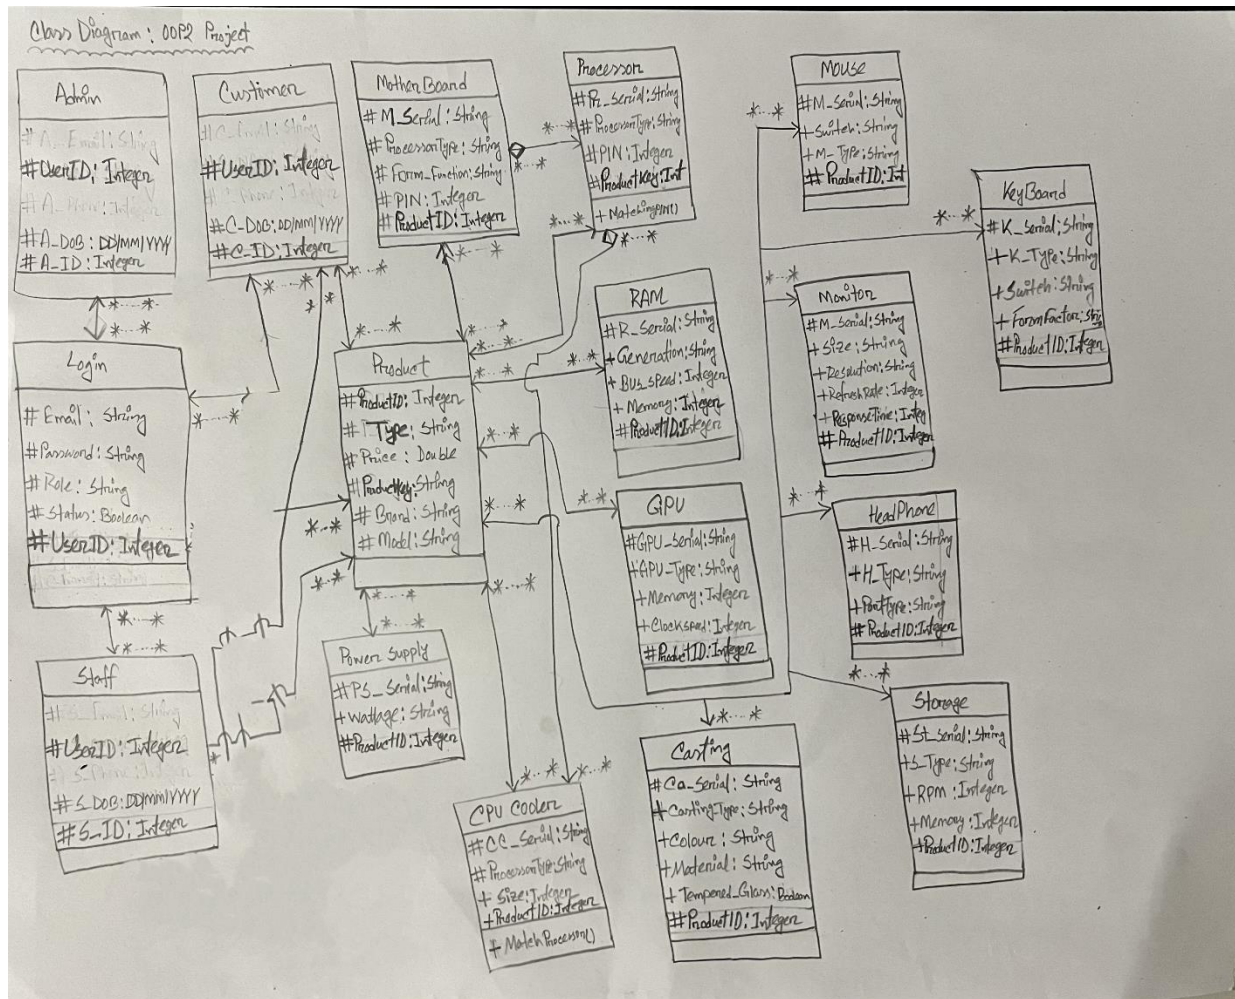 Class Diagram: OOP2 Project
Admin
# A_Email: String
# UserID: Integer
# A_Phone: Integer
# A_DOB: DD/MM/YYYY
# A_ID: Integer
*...*
*...*
Customer
# C_Email: String
# UserID: Integer
# C_Phone: Integer
# C_DOB: DD/MM/YYYY
# C_ID: Integer
*...*
*...*
MotherBoard
# M_Serial: String
# ProcessorType: String
# Form_Function: String
# PIN: Integer
# ProductID: Integer
*...*
*...*
Processor
# Pr_Serial: String
# ProcessorType: String
# PIN: Integer
# ProductKey: Int
+ MatchingPIN()
*...*
*...*
*...*
*...*
Mouse
# M_Serial: String
+ Switch: String
+ M_Type: String
# ProductID: Int
*...*
KeyBoard
# K_Serial: String
+ K_Type: String
+ Switch: String
+ FormFactor: String
# ProductID: Integer
*...*
Login
# Email: String
# Password: String
# Role: String
# Status: Boolean
# UserID: Integer
*...*
*...*
*...*
Product
# ProductID: Integer
# Type: String
# Price: Double
# ProductKey: String
# Brand: String
# Model: String
*...*
*...*
*...*
*...*
*...*
*...*
*...*
*...*
*...*
RAM
# R_Serial: String
+ Generation: String
+ Bus_speed: Integer
+ Memory: Integer
# ProductID: Integer
*...*
Monitor
# M_Serial: String
+ Size: String
+ Resolution: String
+ RefreshRate: Integer
+ ResponseTime: Integ
# ProductID: Integer
*...*
GPU
# GPU_Serial: String
+ GPU_Type: String
+ Memory: Integer
+ Clockspeed: Integer
# ProductID: Integer
*...*
HeadPhone
# H_Serial: String
+ H_Type: String
+ PortType: String
# ProductID: Integer
*...*
Staff
# S_Email: String
# UserID: Integer
# S_Phone: Integer
# S_DOB: DD/MM/YYYY
# S_ID: Integer
*
Power Supply
# PS_Serial: String
+ Wattage: String
# ProductID: Integer
*...*
CPU Cooler
# CC_Serial: String
# ProcessorType: String
+ Size: Integer
+ ProductID: Integer
+ MatchProcessor()
*...*
Casting
# Ca_Serial: String
+ CastingType: String
+ Colour: String
+ Material: String
+ Tempered_Glass: Boolean
# ProductID: Integer
*...*
Storage
# St_Serial: String
+ S_Type: String
+ RPM: Integer
+ Memory: Integer
+ ProductID: Integer
*...*